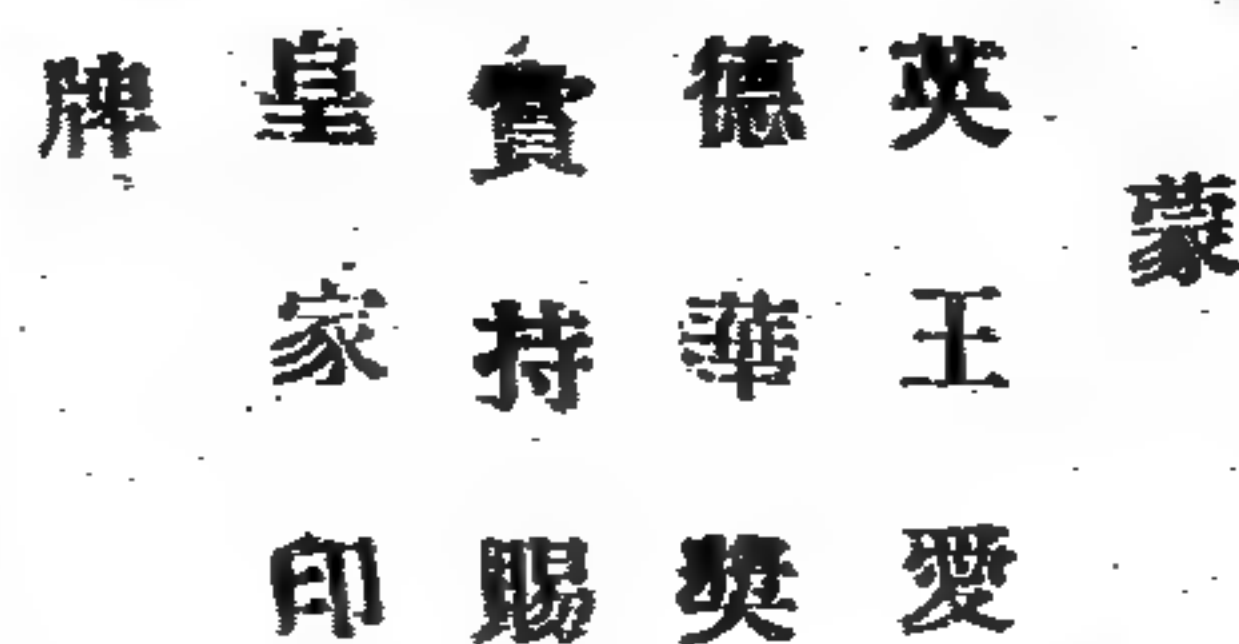 蒙
英王愛
德華獎
賞特賜
皇家印
牌